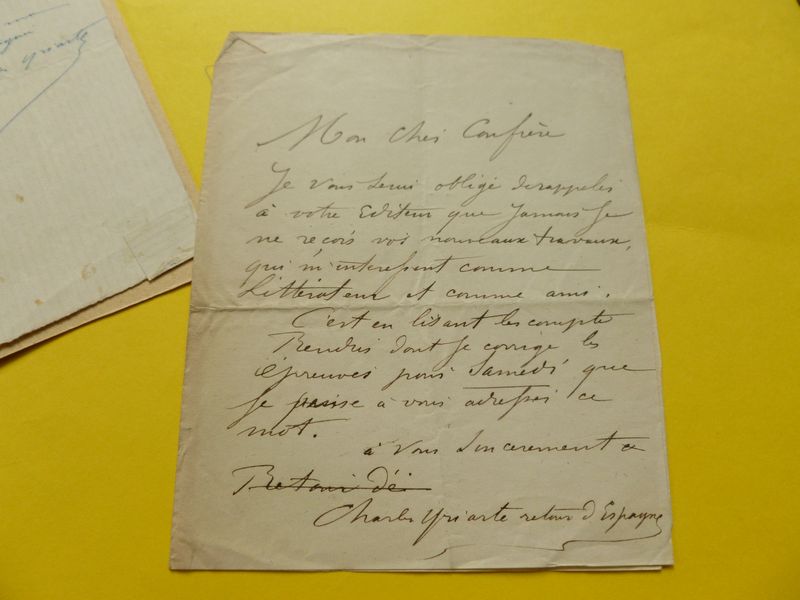 Mon cher Confrère
Je vous serai obligé de rappeler
à votre Editeur que jamais je
ne reçois vos nouveaux travaux,
qui m'interessent comme
Littérateur et comme ami.
C'est en lisant les compte
Rendus dont je corrige les
épreuves pour Samedi que
je pense à vous adresser ce
mot.
à vous sincerement
Charles Yriarte retour d'Espagne